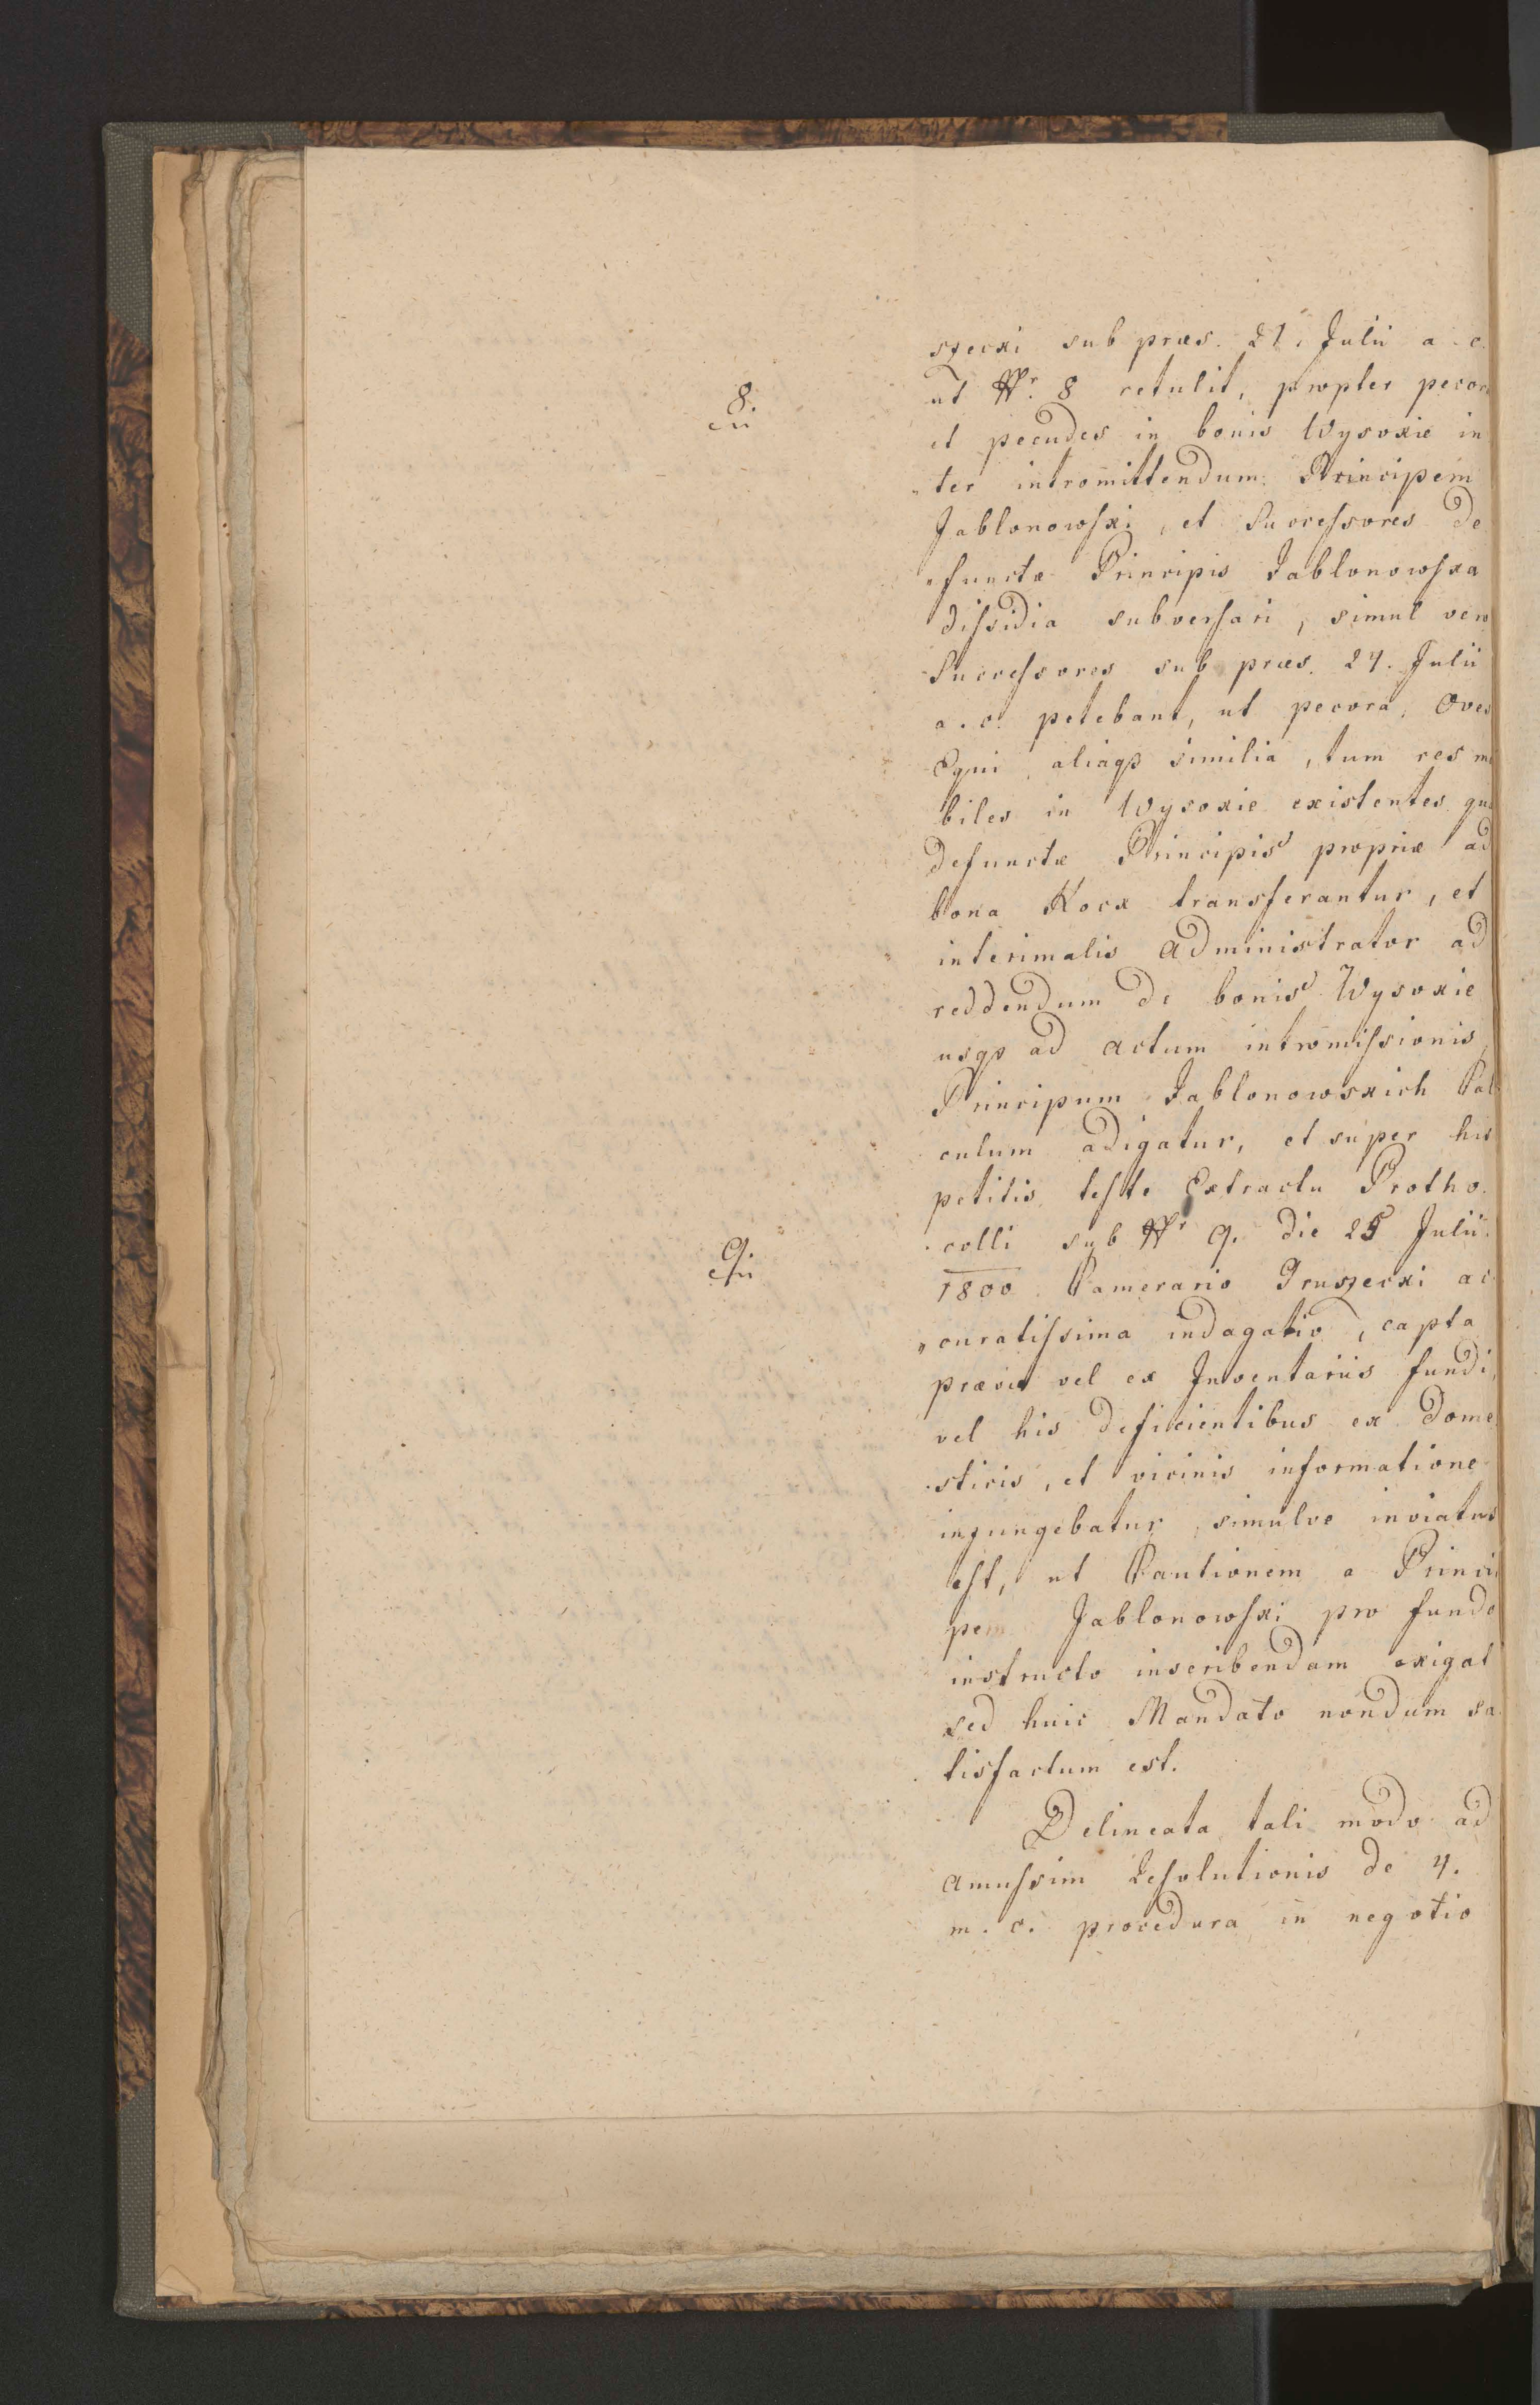 szecki sub præs. 21. Julii a. c.
8.
ut Nr. 8 retulit, propter pecora
et pecudes in bonis Wysokie in
„ter intromittendum Principem
Jablonowski, et Successores de
„functæ Principis Jablonowska
dissidia subversari, simul vero
Successores sub præs. 24. Julii
a. c. petebant, ut pecora, Oves
Equi, aliaqs similia, tum res mo
biles in Wysokie existentes qua
defunctæ Principis propriæ ad
bona Kock transferantur, et
interimalis Administrator ad
reddendum de bonis Wysokie
usqs ad actum intromissionis
Principum Jablonowskich Cal
culum adigatur, et super his
petitis teste Extractu Protho
9.
colli sub Nr 9. die 25 Julii
1800 Camerario Gruszecki ac
„curatissima indagatio, capta
prævie vel ex Inventariis fundi,
vel his deficientibus ex dome
sticis, et vicinis informatione
injungebatur, simulve inviatus
est, ut Cautionem a Princi
pem Jablonowski pro fundo
instructo inscribendam exigat
sed huic Mandato nondum sa
tisfactum est.
Delineata tali modo ad
amussim Resolutionis de 4.
m. c. procedura in negotio